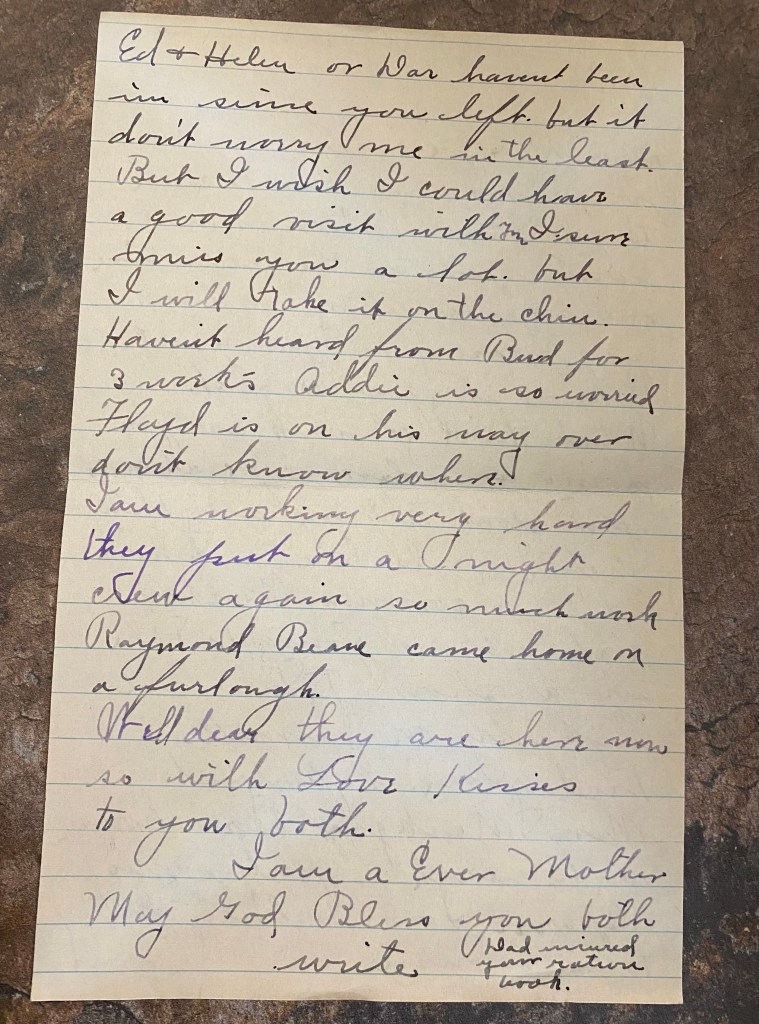 Ed & Helen or Dar havent been
in since you left. but it
don't worry me in the least.
But I wish I could have
a good visit with I sure
miss you a lot. but
I will take it on the chin.
Havent heard from Bud for
3 weeks Addie is so worried
Floyd is on his way over
don't know when.
I am working very hard
they put on a night
crew again so much work
Raymond Beane came home on
a furlough.
Well dear they are here now
so with Love Kisses
to you both.
I am a Ever Mother
May God Bless you both
write
Dad
your ration
book.